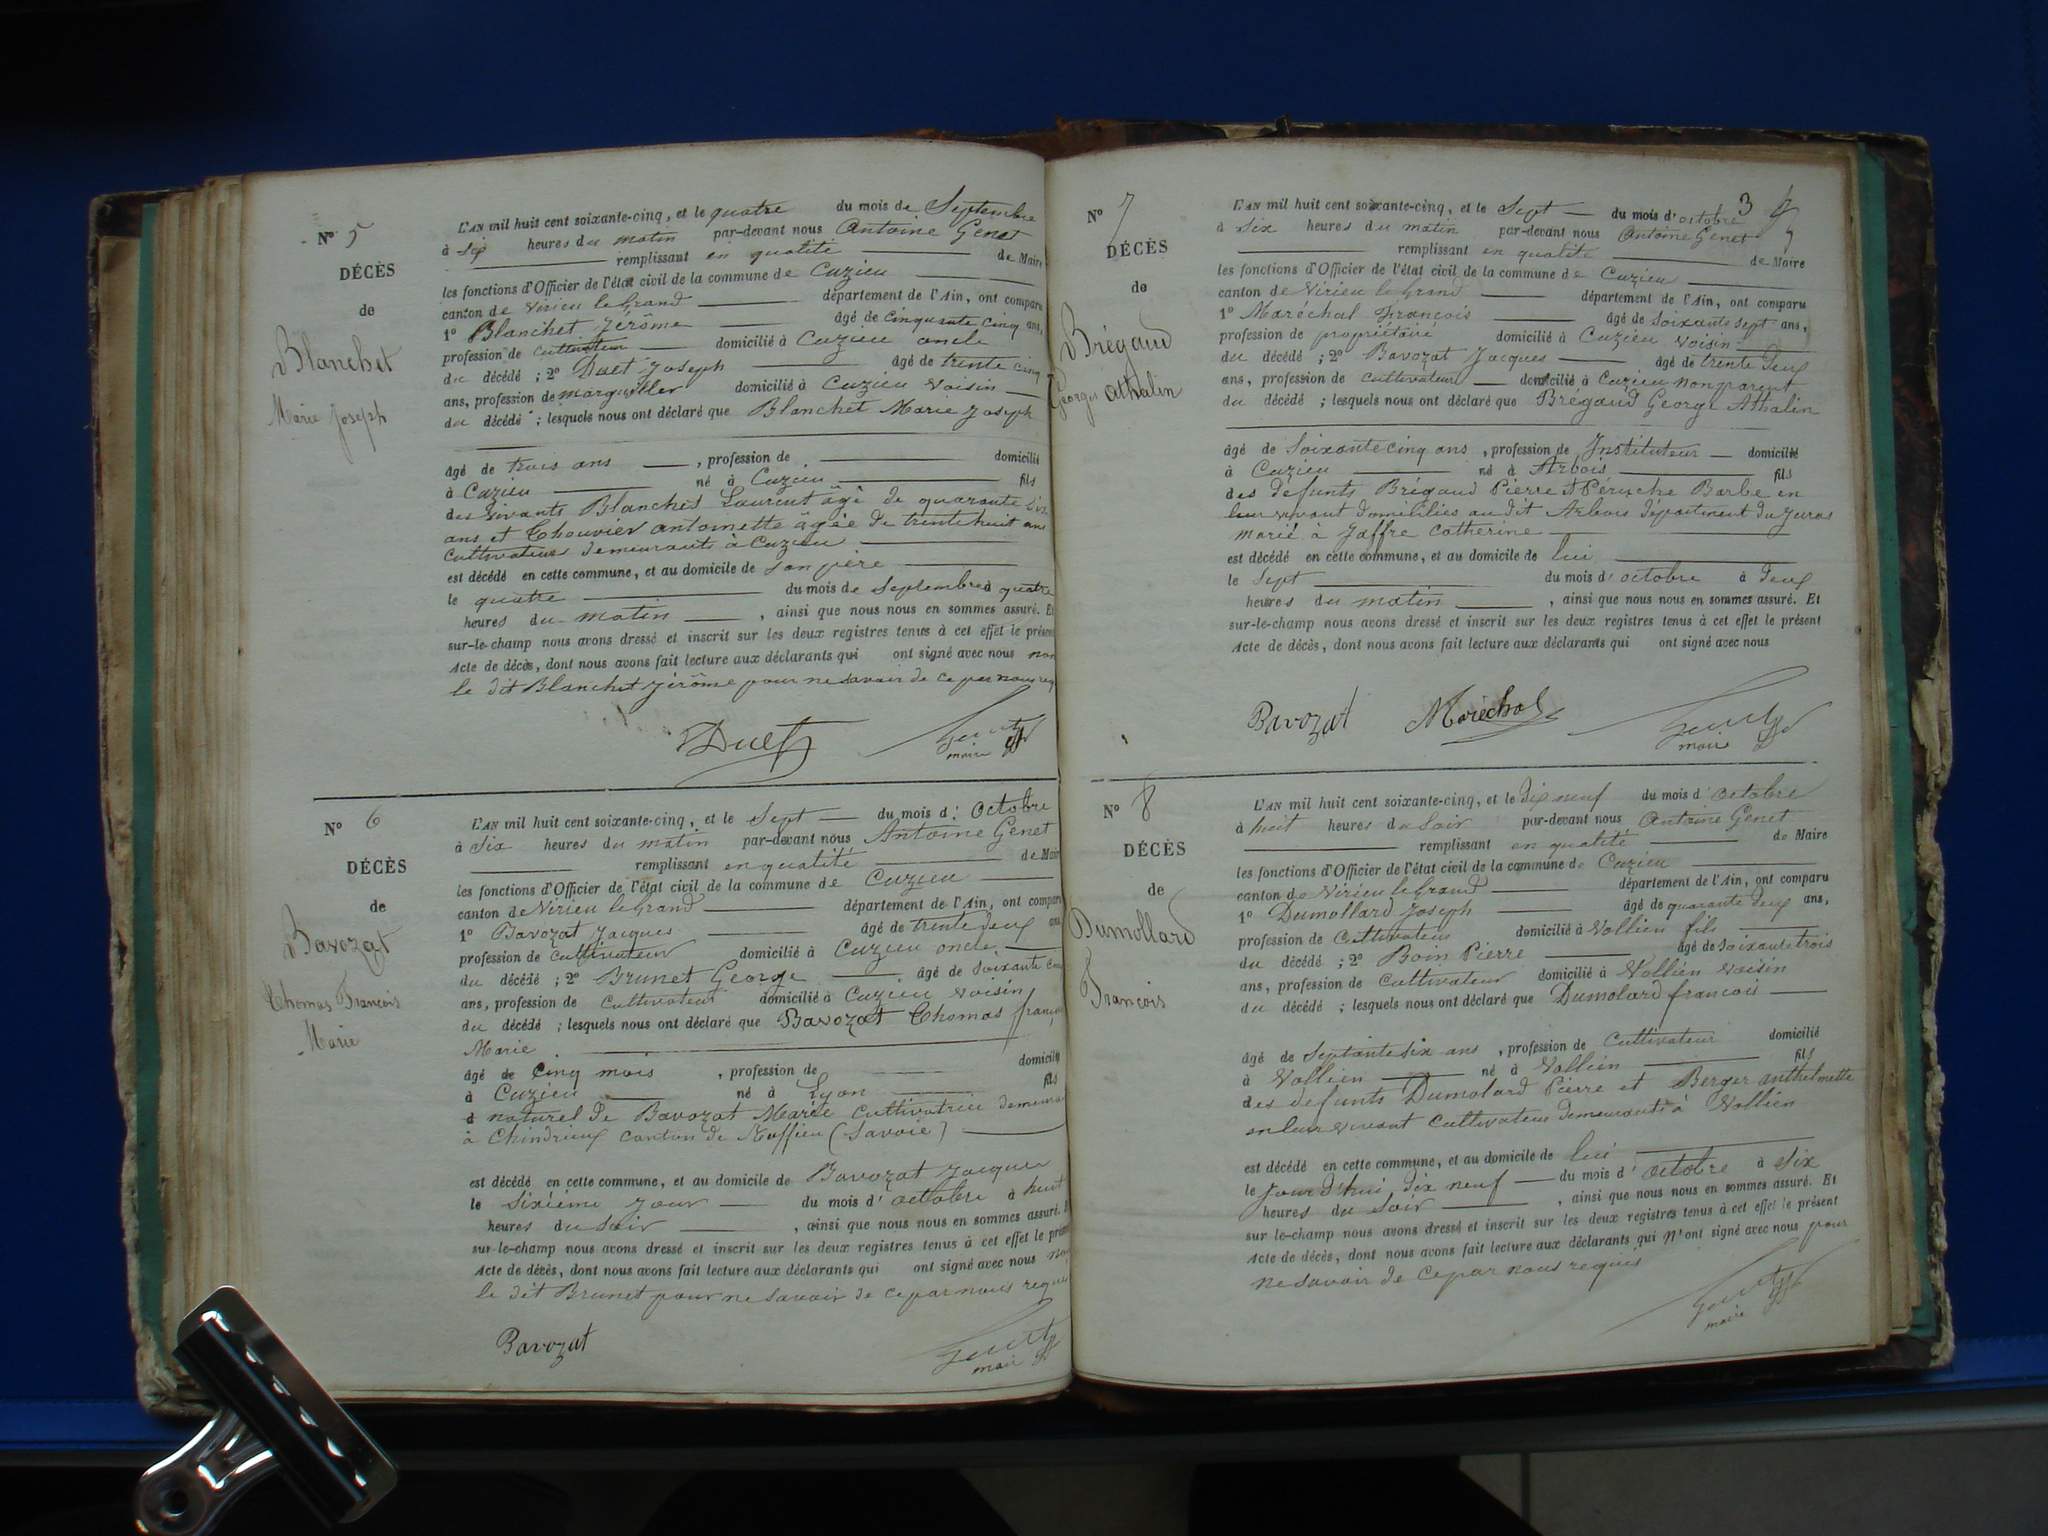 N° 5
DÉCÈS
de
Blanchet
Marie Joseph
L'AN mil huit cent soixante-cinq, et le quatre du mois de Septembre
à six heures du matin par-devant nous Antoine Genet
remplissant en qualité de Maire
les fonctions d'Officier de l'état civil de la commune de Cuzieu
canton de Virieu le Grand département de l'Ain, ont comparu
1° Blanchet Jérôme âgé de cinquante cinq ans,
profession de cultivateur domicilié à Cuzieu oncle
du décédé ; 2° Duet Joseph âgé de trente cinq
ans, profession de marguiller domicilié à Cuzieu voisin
du décédé ; lesquels nous ont déclaré que Blanchet Marie Joseph
âgé de trois ans , profession de domicilié
à Cuzieu né à Cuzieu fils
des vivants Blanchet Laurent âgé de quarante
ans et Thouvier antoinette âgée de trente huit ans
cultivateurs demeurants à Cuzieu
est décédé en cette commune, et au domicile de son père
le quatre du mois de Septembre à quatre
heures du matin , ainsi que nous nous en sommes assuré. Et
sur-le-champ nous avons dressé et inscrit sur les deux registres tenus à cet effet le présent
Acte de décès, dont nous avons fait lecture aux déclarants qui ont signé avec nous non
le dit Blanchet Jérôme pour ne savoir de ce par nous req
Duet
Genet
maire
N° 6
DÉCÈS
de
Bavozat
Thomas François
Marie
L'AN mil huit cent soixante-cinq, et le Sept du mois d'octobre
à Six heures du matin par-devant nous Antoine Genet
remplissant en qualité de Maire
les fonctions d'Officier de l'état civil de la commune de Cuzieu
canton de Virieu le Grand département de l'Ain, ont comparu
1° Bavozat Jacques âgé de trente deux ans
profession de cultivateur domicilié à Cuzieu oncle
du décédé ; 2° Brunet George âgé de soixante
ans, profession de cultivateur domicilié à Cuzieu voisin
du décédé ; lesquels nous ont déclaré que Bavozat Thomas françois
Marie
âgé de cinq mois , profession de domicilié
à Cuzieu né à Lyon fils
naturel de Bavozat Marie cultivatrice demeurant
à Chindrieux canton de Ruffieu (Savoie)
est décédé en cette commune, et au domicile de Bavozat Jacques
le sixième jour du mois d'octobre à huit
heures du soir , ainsi que nous nous en sommes assuré. Et
sur-le-champ nous avons dressé et inscrit sur les deux registres tenus à cet effet le présent
Acte de décès, dont nous avons fait lecture aux déclarants qui ont signé avec nous non
le dit Brunet pour ne savoir de ce par nous requis
Bavozat
Genet
maire
3
N° 7
DÉCÈS
de
Brégaud
Georges Athalin
L'AN mil huit cent soixante-cinq, et le Sept du mois d'octobre
à six heures du matin par-devant nous Antoine Genet
remplissant en qualité de Maire
les fonctions d'Officier de l'état civil de la commune de Cuzieu
canton de Virieu le Grand département de l'Ain, ont comparu
1° Maréchal François âgé de soixante sept ans,
profession de propriétaire domicilié à Cuzieu voisin
du décédé ; 2° Bavozat Jacques âgé de trente deux
ans, profession de cultivateur domicilié à Cuzieu non parent
du décédé ; lesquels nous ont déclaré que Brégaud George Athalin
âgé de Soixante cinq ans , profession de Instituteur domicilié
à Cuzieu né à Arbois fils
des défunts Brégaud Pierre et Péruche Barbe en
leur vivant domiciliés au dit Arbois département du Jura
marié à Jaffre Catherine
est décédé en cette commune, et au domicile de lui
le Sept du mois d'octobre à deux
heures du matin , ainsi que nous nous en sommes assuré. Et
sur-le-champ nous avons dressé et inscrit sur les deux registres tenus à cet effet le présent
Acte de décès, dont nous avons fait lecture aux déclarants qui ont signé avec nous
Bavozat Maréchal
Genet
maire
N° 8
DÉCÈS
de
Dumollard
François
L'AN mil huit cent soixante-cinq, et le dix neuf du mois d'octobre
à huit heures du soir par-devant nous Antoine Genet
remplissant en qualité de Maire
les fonctions d'Officier de l'état civil de la commune de Cuzieu
canton de Virieu le Grand département de l'Ain, ont comparu
1° Dumollard Joseph âgé de quarante deux ans,
profession de cultivateur domicilié à Vollien fils
du décédé ; 2° Boin Pierre âgé de soixante trois
ans, profession de cultivateur domicilié à Vollien voisin
du décédé ; lesquels nous ont déclaré que Dumolard francois
âgé de septante six ans , profession de cultivateur domicilié
à Vollien né à Vollien fils
des défunts Dumolard Pierre et Berger anthelmette
en leur vivant cultivateurs demeurants à Vollien
est décédé en cette commune, et au domicile de lui
le jourd'hui dix neuf du mois d'octobre à six
heures du soir , ainsi que nous nous en sommes assuré. Et
sur-le-champ nous avons dressé et inscrit sur les deux registres tenus à cet effet le présent
Acte de décès, dont nous avons fait lecture aux déclarants qui n'ont signé avec nous pour
ne savoir de ce par nous requis
Genet
maire